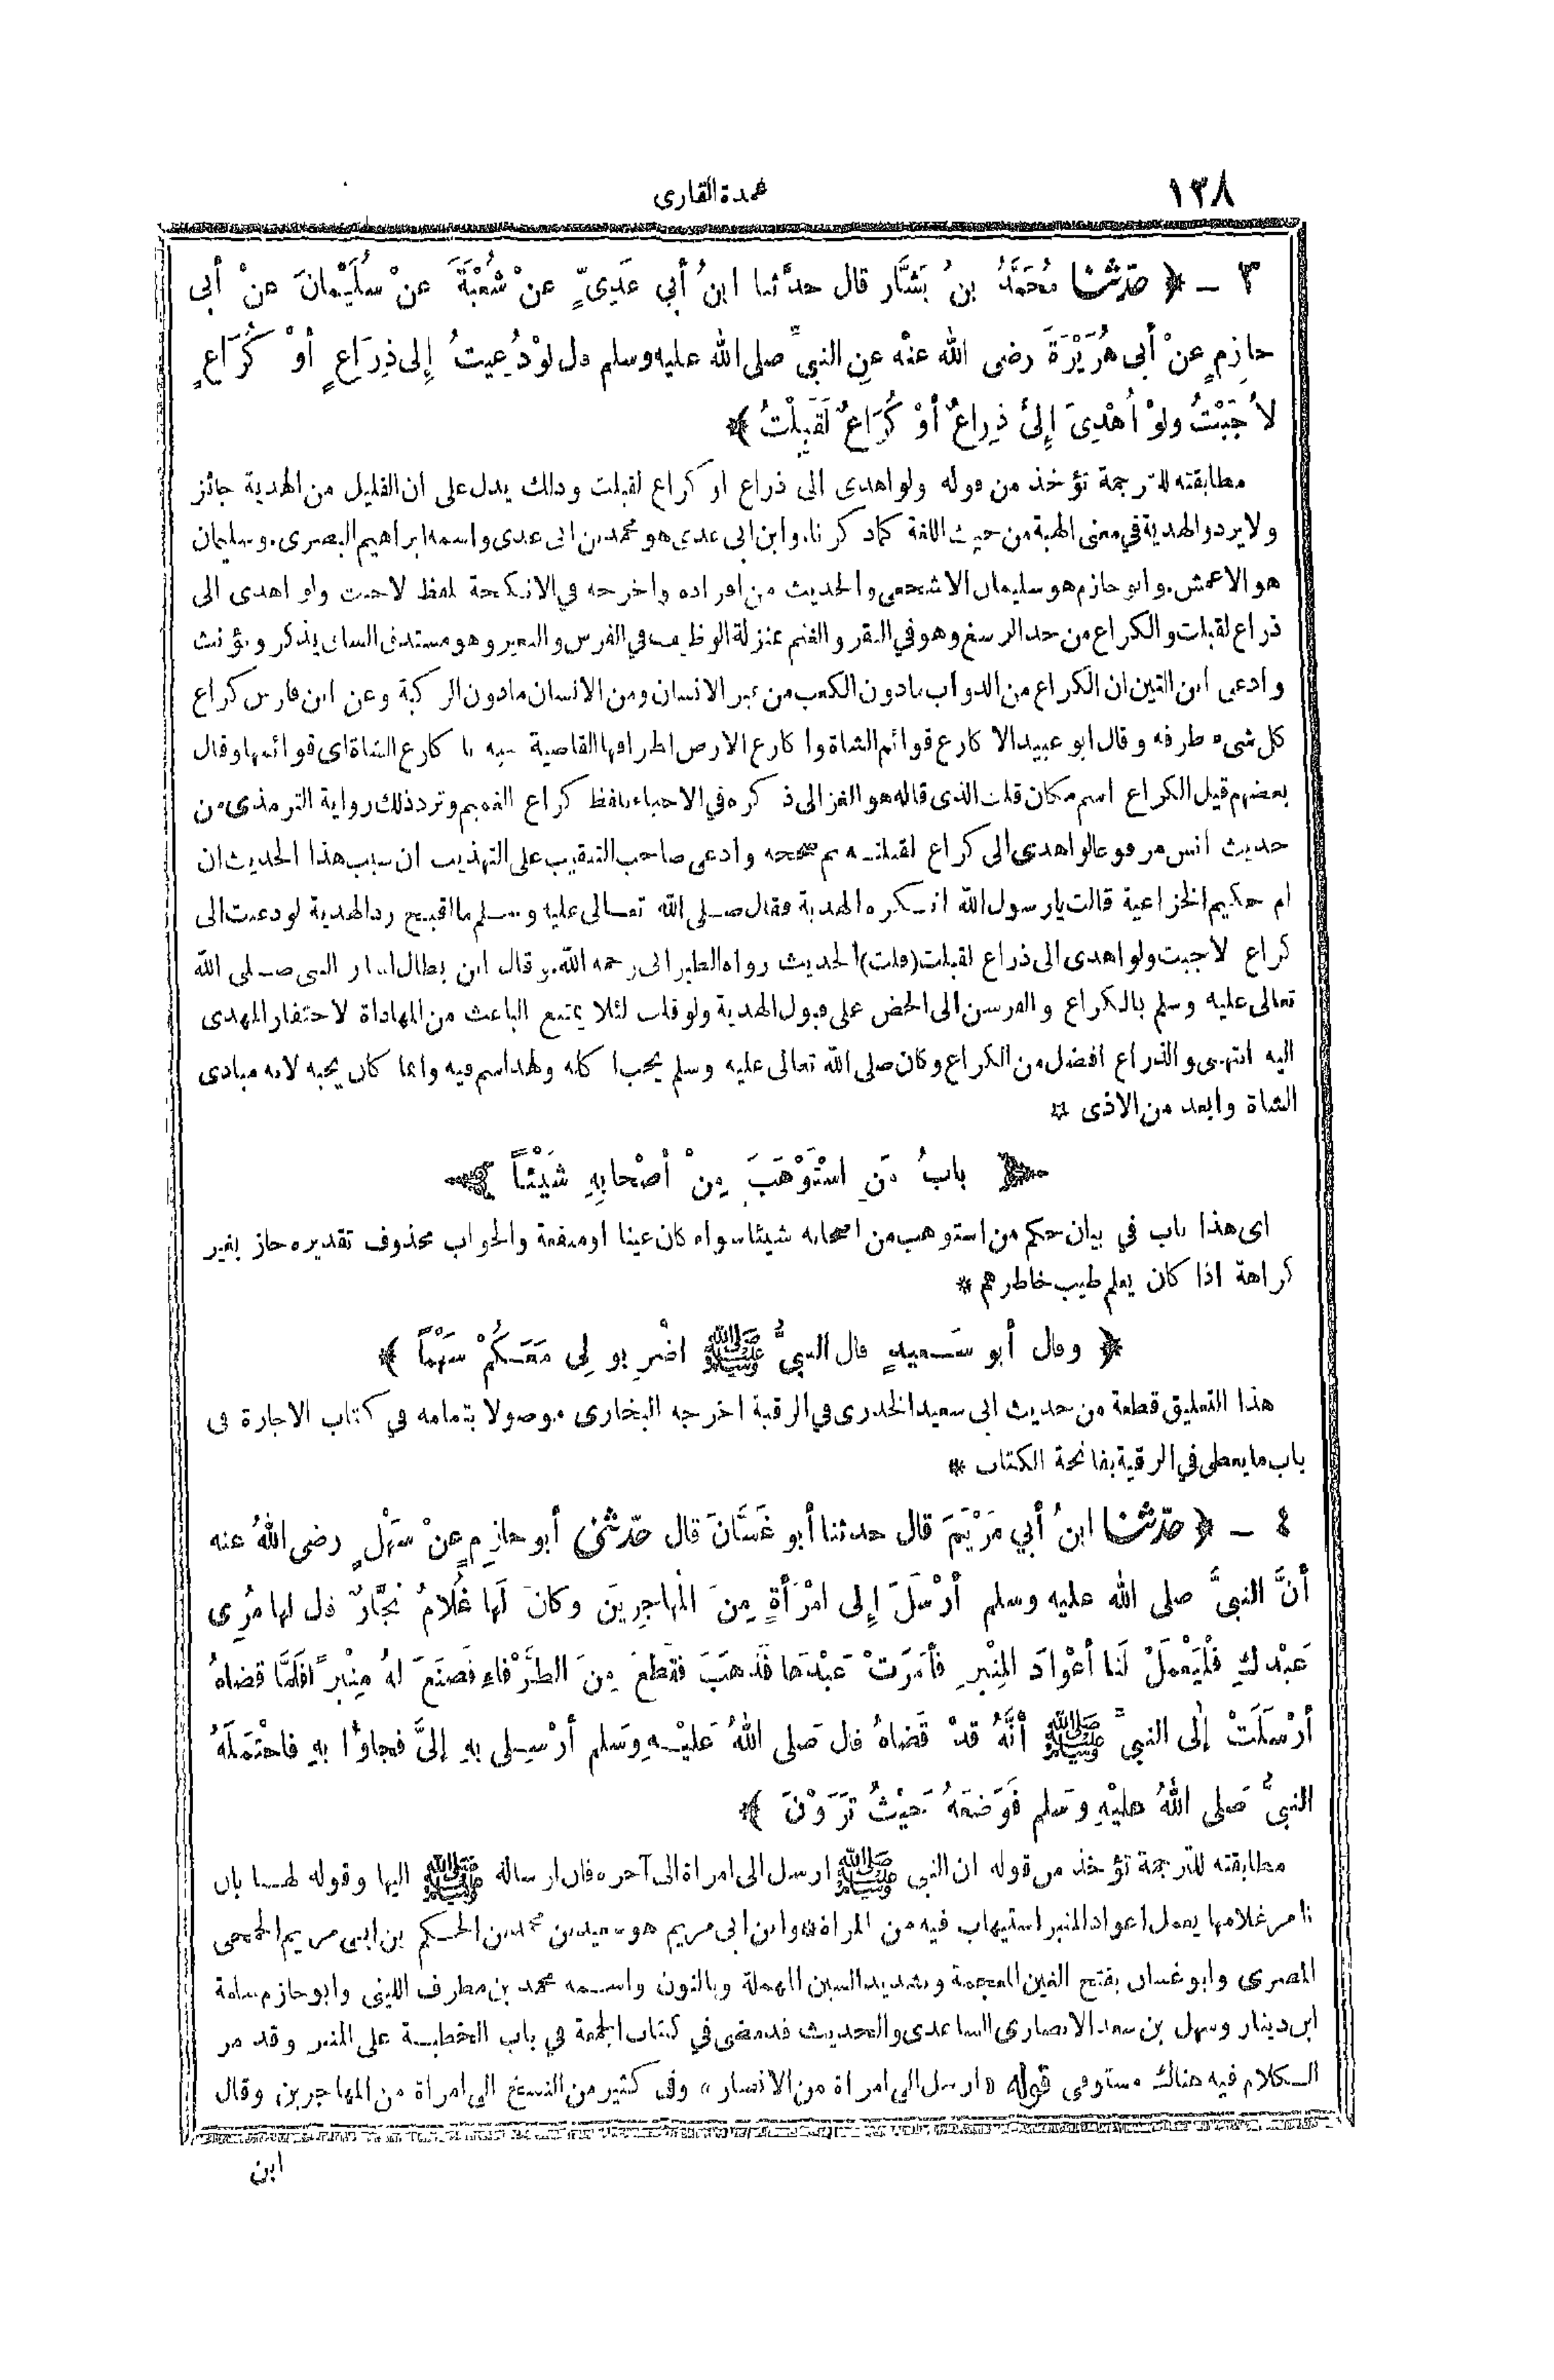 ١٣٨
عمدة القارى
٣ ـ ﴿ حدّثنا مُحَمَّدُ بنُ بَشَّار قال حدَّثنا ابنُ أبي عَدِىٍّ عنْ شُعْبَةَ عنْ سُلَيْمانَ عنْ أبى
حازِمٍ عنْ أبى هُرَيْرَةَ رضى الله عنْه عنِ النبىِّ صلى الله عليه وسلم قال لوْ دُعِيتُ إلى ذِرَاعٍ أوْ كُرَاعٍ
لأَجَبْتُ ولوْ أُهْدِىَ إلىَّ ذِراعٌ أوْ كُرَاعٌ لَقَبِلْتُ ﴾
مطابقته للترجمة تؤخذ من قوله ولو اهدى الى ذراع او كراع لقبلت وذلك يدل على ان القليل من الهدية جائز
ولا يرد والهدية في معنى الهبة من حيث اللغة كما ذكرنا. وابن ابى عدى هو محمد بن ابى عدى واسمه ابراهيم البصرى. وسليمان
هو الاعمش. وابو حازم هو سليمان الاشجعى والحديث من افراده واخرجه في الانكحة بلفظ لاجبت ولو اهدى الى
ذراع لقبلت والكراع من حد الرسغ وهو في البقر والغنم بمنزلة الوظيف في الفرس والبعير وهو مستدق الساق يذكر ويؤنث
وادعى ابن التين ان الكراع من الدواب ما دون الكعب من غير الانسان ومن الانسان ما دون الركبة وعن ابن فارس كراع
كل شىء طرفه وقال ابو عبيد الا كارع قوائم الشاة وا كارع الارض اطرافها القاصية شبه با كارع الشاة اى قوائمها وقال
بعضهم قيل الكراع اسم مكان قلت الذى قاله هو الغزالى ذكره في الاحياء بلفظ كراع الغميم وترد ذلك رواية الترمذى من
حديث انس مرفوعا لو اهدى الى كراع لقبلت ثم صححه وادعى صاحب التنقيب على التهذيب ان سبب هذا الحديث ان
ام حكيم الخزاعية قالت يا رسول الله اتكره الهدية فقال صلى الله تعالى عليه وسلم ما اقبح رد الهدية لو دعيت الى
كراع لاجبت ولو اهدى الى ذراع لقبلت (قلت) الحديث رواه الطبرانى رحمه الله. وقال ابن بطال اشار النبى صلى الله
تعالى عليه وسلم بالكراع والفرسن الى الحض على قبول الهدية ولو قلت لئلا يمتنع الباعث من المهاداة لاحتقار المهدى
اليه انتهى والذراع افضل من الكراع وكان صلى الله تعالى عليه وسلم يحب ا كله ولهذا سم فيه وانما كان يحبه لانه مبادى
الشاة وابعد من الاذى *
بابُ مَنِ اسْتَوْهَبَ مِنْ أصْحابِهِ شَيْئاً
اى هذا باب في بيان حكم من استوهب من اصحابه شيئا سواء كان عينا او منفعة والجواب محذوف تقديره جاز بغير
كراهة اذا كان يعلم طيب خاطرهم *
﴿ وقال أبو سَعيدٍ قال النبىُّ ﷺ اضْرِبو لِى مَعَكُمْ سَهْماً ﴾
هذا التعليق قطعة من حديث ابى سعيد الخدرى في الرقية اخرجه البخارى موصولا بتمامه في كتاب الاجارة فى
باب ما يعطى في الرقية بفاتحة الكتاب *
٤ ـ ﴿ حدّثنا ابنُ أبي مَرْيَمَ قال حدثنا أبو غَسَّانَ قال حدّثنى أبو حازِمٍ عنْ سَهْلٍ رضى اللهُ عنه
أنَّ النبىَّ صلى الله عليه وسلم أرْسَلَ إلى امْرَأةٍ مِنَ المُهاجِرِينَ وكانَ لَها غُلاَمٌ نَجَّارٌ قال لها مُرِى
عَبْدكِ فلْيَعْمَلْ لَنا أعْوَادَ المِنْبرِ فأمَرَتْ عَبْدَها فَذهَبَ فقَطعَ مِنَ الطَّرْفاءِ فَصَنَعَ لهُ مِنْبرًا فَلَمَّا قضاهُ
أرْسَلَتْ إلى النبىِّ ﷺ أنَّهُ قدْ قَضاهُ قال صَلى اللهُ عَليْهِ وَسَلم أرْسِلى بهِ إلىَّ فجاؤُا بهِ فاحْتمَلَهُ
النبىُّ صَلى اللهُ عليْهِ وسَلم فَوَضعَهُ حَيْثُ تَرَوْنَ ﴾
مطابقته للترجمة تؤخذ من قوله ان النبى ﷺ ارسل الى امراة الى آخره فان ارساله ﷺ اليها وقوله لها بان
تامر غلامها يعمل اعواد المنبر استيهاب فيه من المراة وابن ابى مريم هو سعيد بن محمد بن الحكم بن ابى مريم الجمحى
المصرى وابو غسان بفتح الغين المعجمة وتشديد السين المهملة وبالنون واسمه محمد بن مطرف الليثى وابو حازم سلمة
ابن دينار وسهل بن سعد الانصارى الساعدى والحديث قد مضى في كتاب الجمعة في باب الخطبة على المنبر وقد مر
الكلام فيه هناك مستوفى قوله «ارسل الى امراة من الانصار» وفى كثير من النسخ الى امراة من المهاجرين وقال
ابن